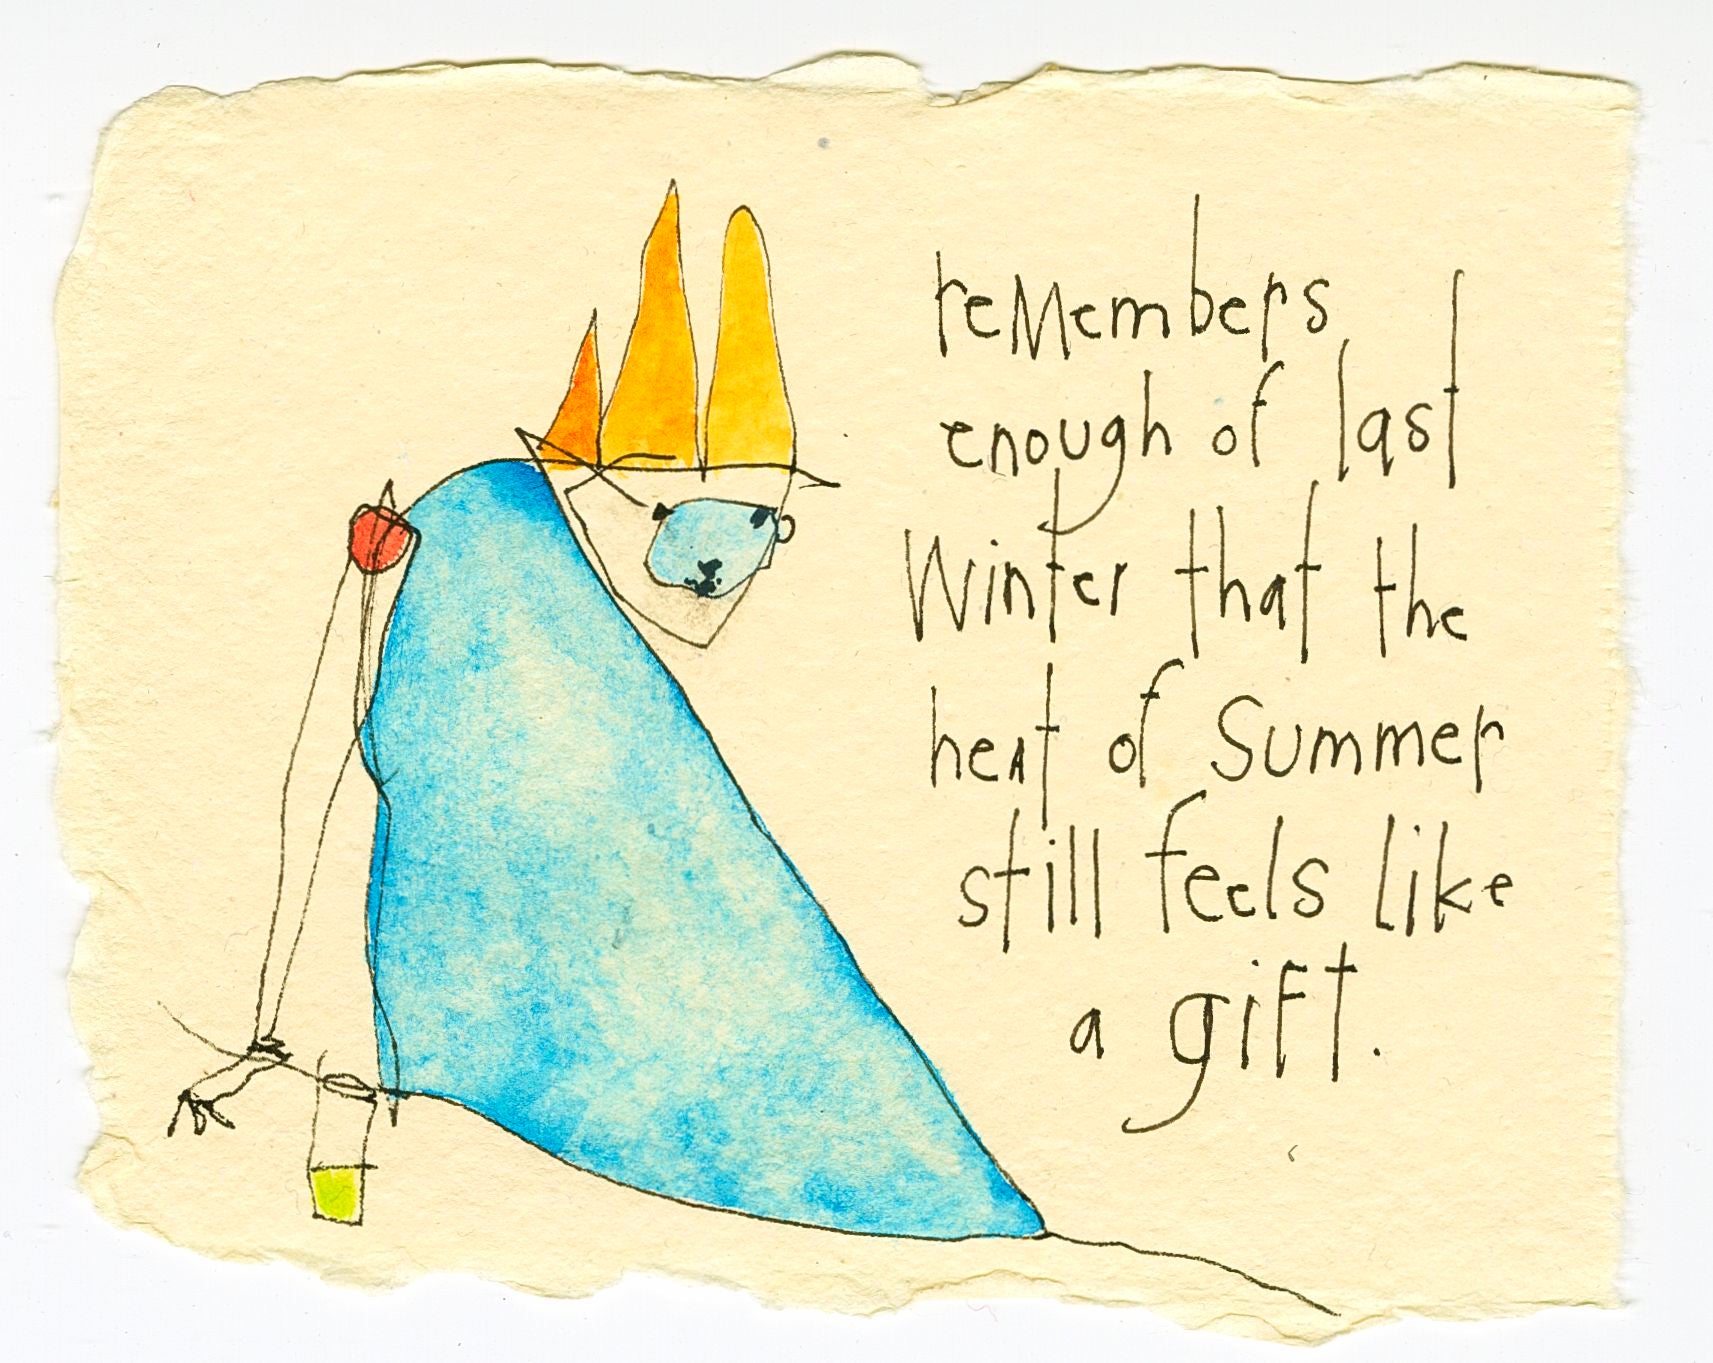 reMembers
enough of last
Winter that the
heat of Summer
still feels like
a gift.